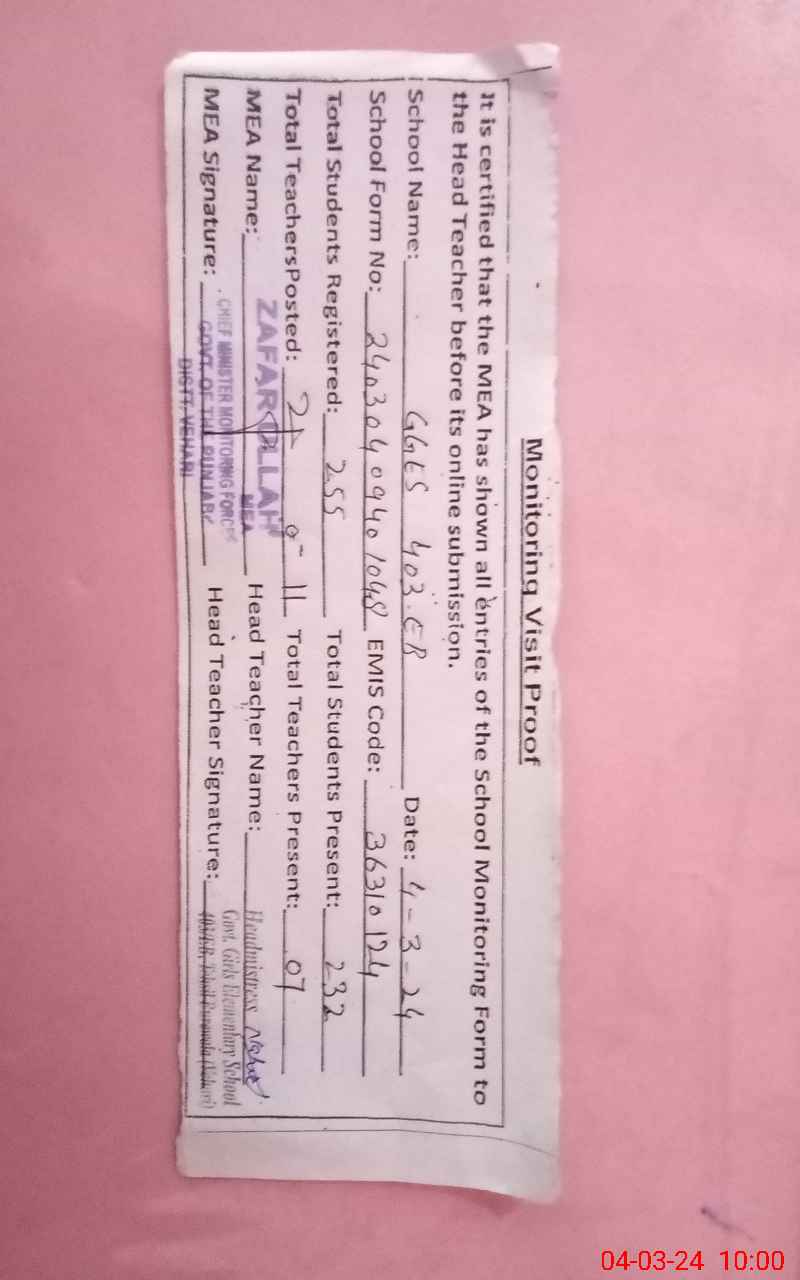 Monitoring Visit Proof
It is certified that the MEA has shown all entries of the School Monitoring Form to
the Head Teacher before its online submission.
School Name: GGES 403.EB Date: 4-3-24
School Form No: 24030409401048 EMIS Code: 36310124
Total Students Registered: 255 Total Students Present: 232
Total TeachersPosted: 11 Total Teachers Present: 07
MEA Name: ZAFAR ULLAH Head Teacher Name: Headmistress
MEA
MEA Signature: CHIEF MINISTER MONITORING FORCE Head Teacher Signature: Govt. Girls Elementary School
GOVT. OF THE PUNJAB 403/E.B, Tehsil Burewala (Vehari)
DISTT. VEHARI
04-03-24 10:00